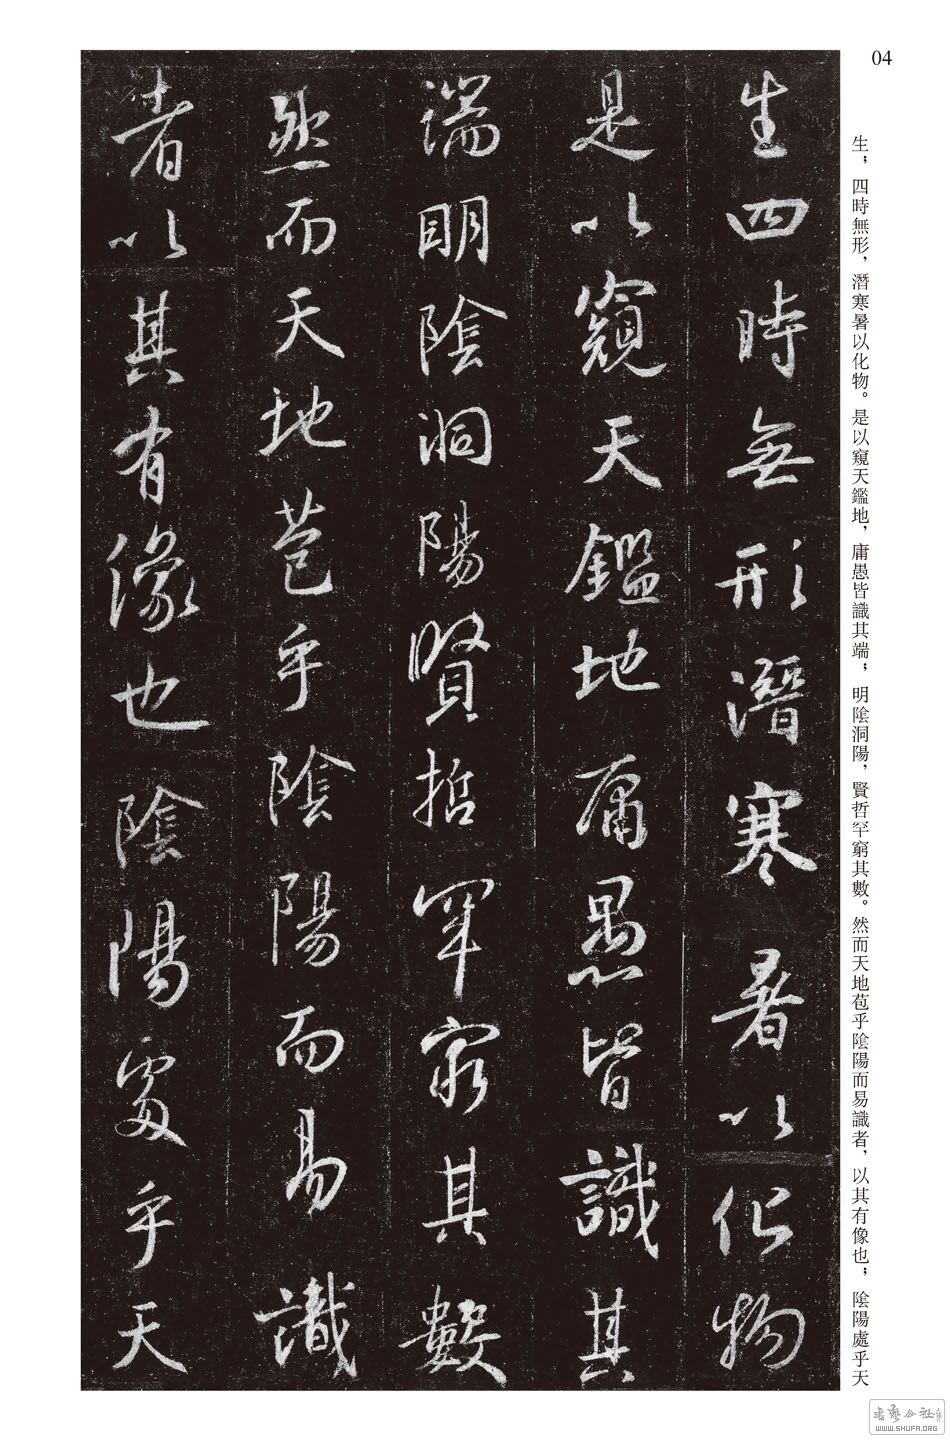 04
生；四時無形，潛寒暑以化物。是以窺天鑑地，庸愚皆識其端；明陰洞陽，賢哲罕窮其數。然而天地苞乎陰陽而易識者，以其有像也；陰陽處乎天
生四時無形潛寒暑以化物
是以窺天鑑地庸愚皆識其
端明陰洞陽賢哲罕窮其數
然而天地苞乎陰陽而易識
者以其有像也陰陽處乎天
書藝公社
WWW.SHUFA.ORG